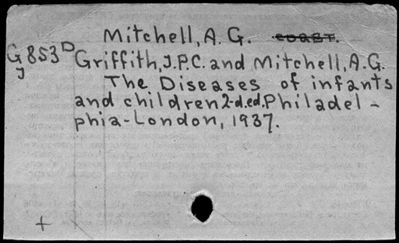 Mitchell, A. G. coast.
G853D Griffith, J.P.C. and Mitchell, A.G.
y
The Diseases of infants
and children 2-d.ed. Philadel-
phia-London, 1937.
+